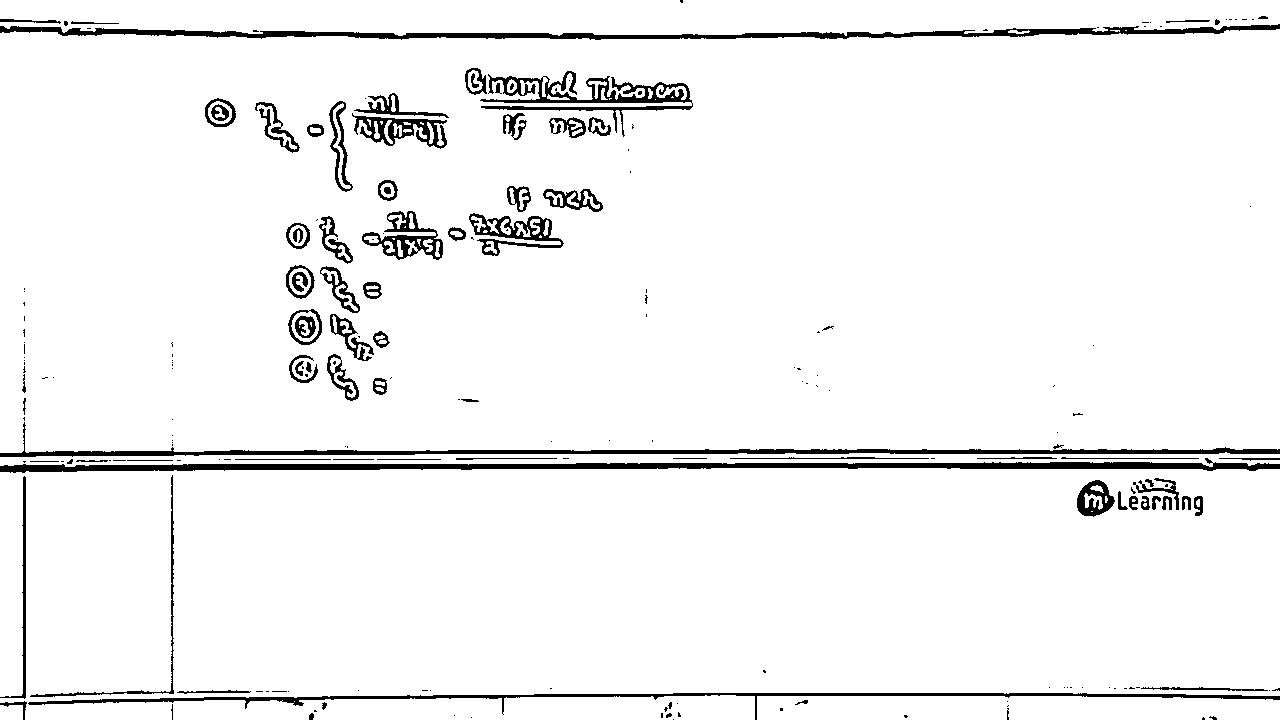 Binomial Theorem
② ⁿCᵣ = { n! / r!(n-r)! if n≥r
0 if n<r
① ⁷C₂ = 7! / 2!×5! = 7×6×5! / 2
② ⁿC₂ =
③ ¹²C₁₇ =
④ ⁸C₃ =
m Learning